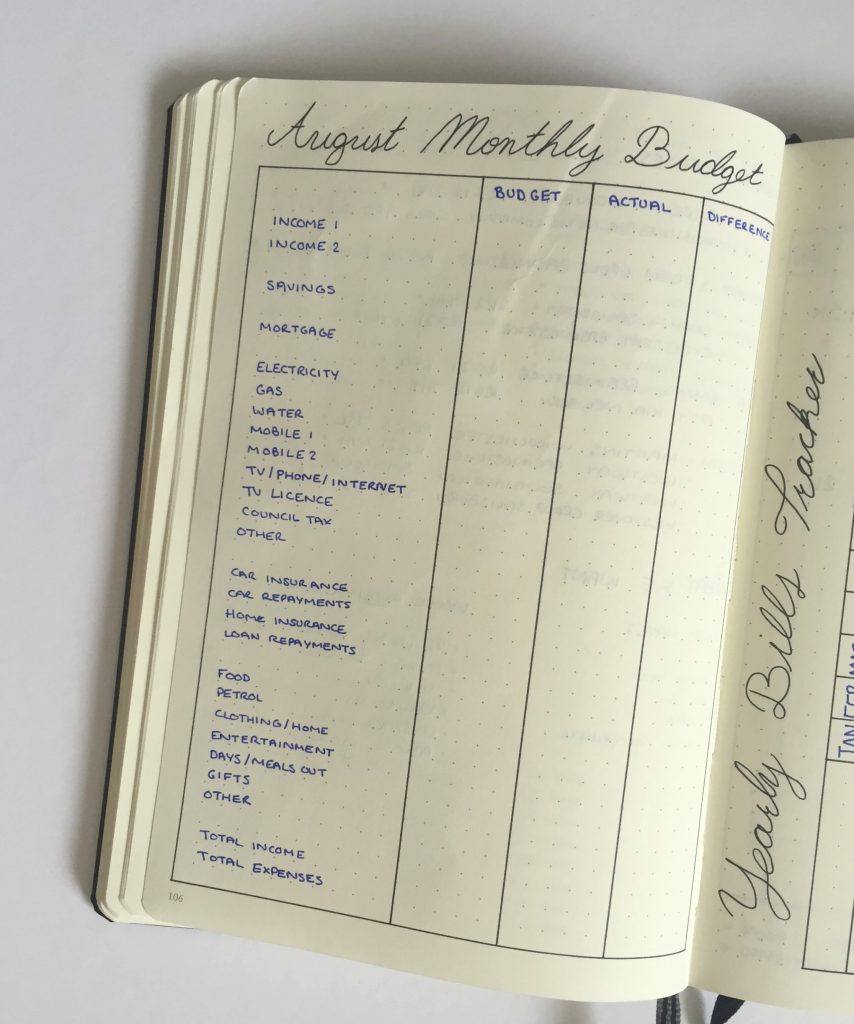 August Monthly Budget
BUDGET ACTUAL DIFFERENCE
INCOME 1
INCOME 2
SAVINGS
MORTGAGE
ELECTRICITY
GAS
WATER
MOBILE 1
MOBILE 2
TV/PHONE/INTERNET
TV LICENCE
COUNCIL TAX
OTHER
CAR INSURANCE
CAR REPAYMENTS
HOME INSURANCE
LOAN REPAYMENTS
FOOD
PETROL
CLOTHING/HOME
ENTERTAINMENT
DAYS/MEALS OUT
GIFTS
OTHER
TOTAL INCOME
TOTAL EXPENSES
106
Yearly Bills Tracker
JAN
FEB
MAR